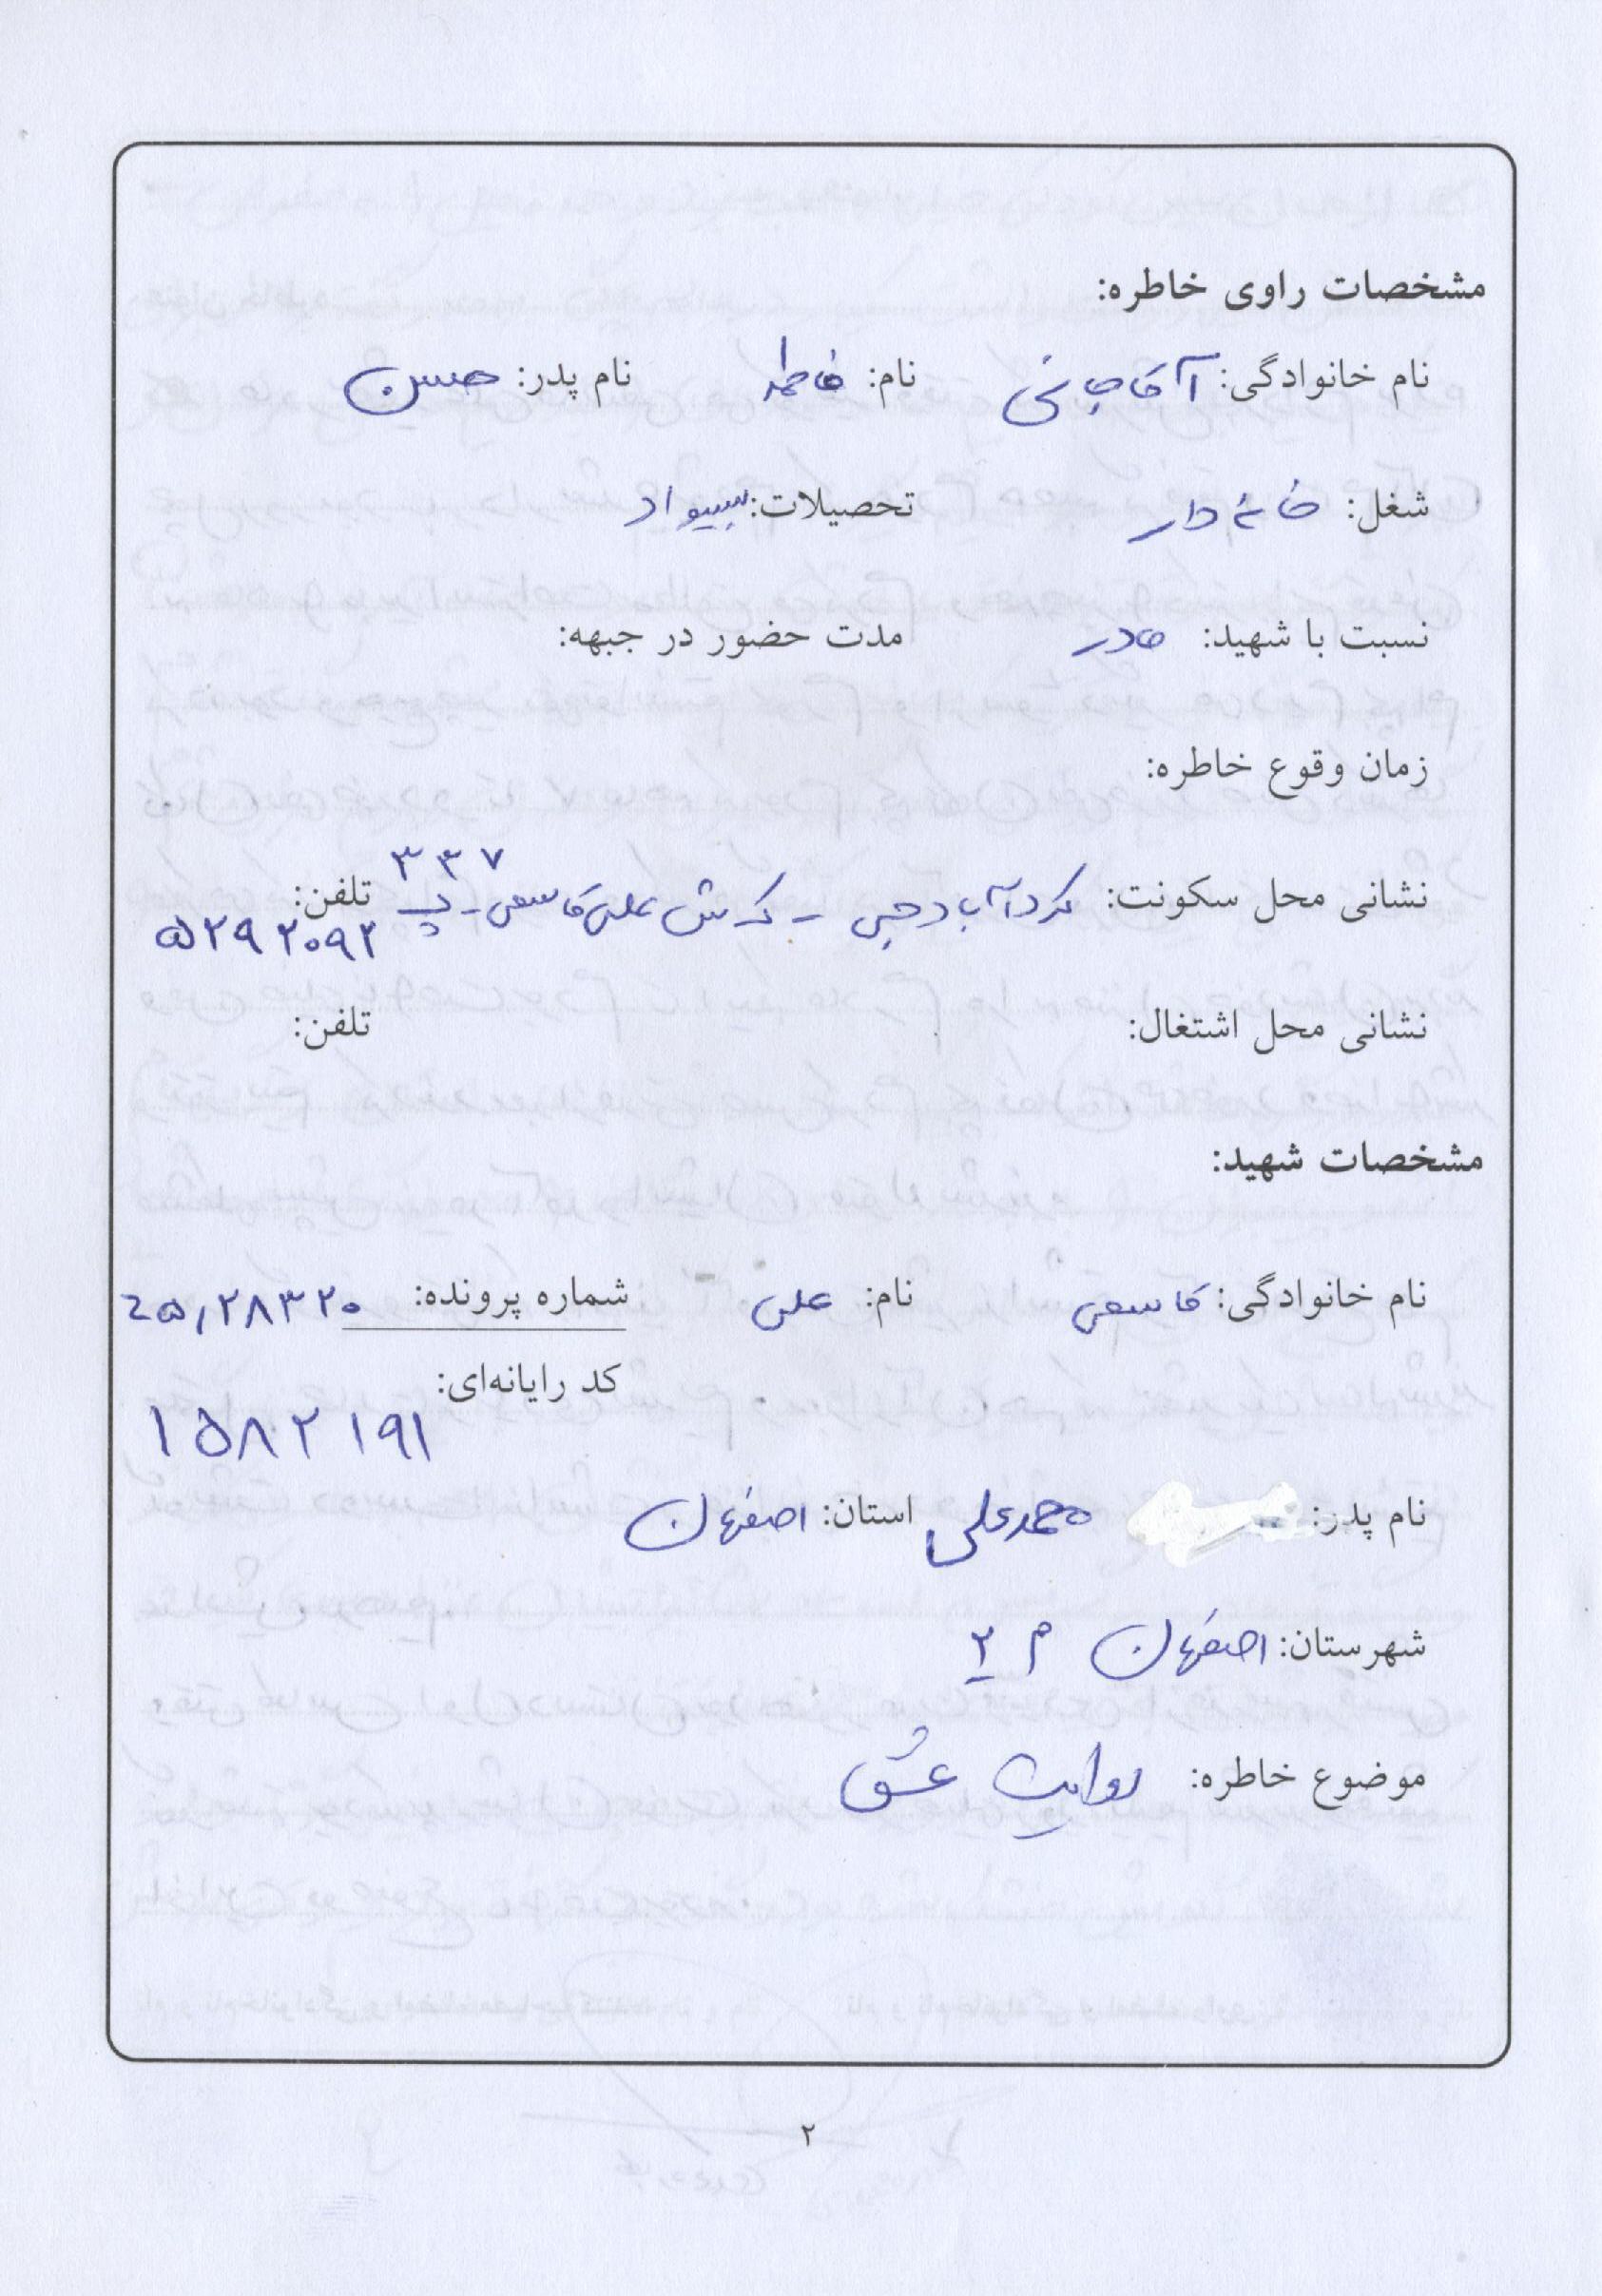 مشخصات راوی خاطره:
نام خانوادگی: آقاجانی نام: فاطمه نام پدر: حسن
شغل: خانه دار تحصیلات: بیسواد
نسبت با شهید: مادر مدت حضور در جبهه:
زمان وقوع خاطره:
نشانی محل سکونت: کردآباد جی - ک ش علی قاسمی - پ ۳۳۷ تلفن:
۵۲۹۲۰۹۲
نشانی محل اشتغال: تلفن:
مشخصات شهید:
نام خانوادگی: قاسمی نام: علی شماره پرونده: ۲۸۳۲۰
کد رایانه‌ای:
۱۵۸۲۱۹۱
نام پدر: محمدعلی استان: اصفهان
شهرستان: اصفهان م ۲
موضوع خاطره: روایت عشق
۲